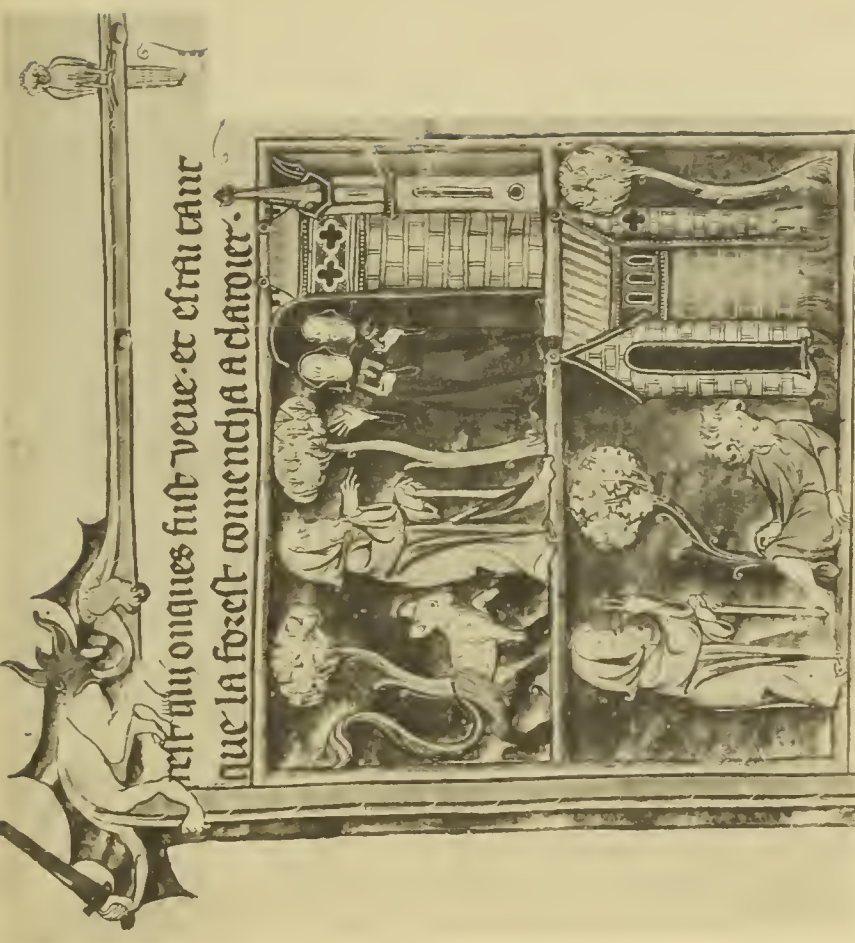 rest qui onques fust veue· et estrai tant
que la forest comencha a claroier·